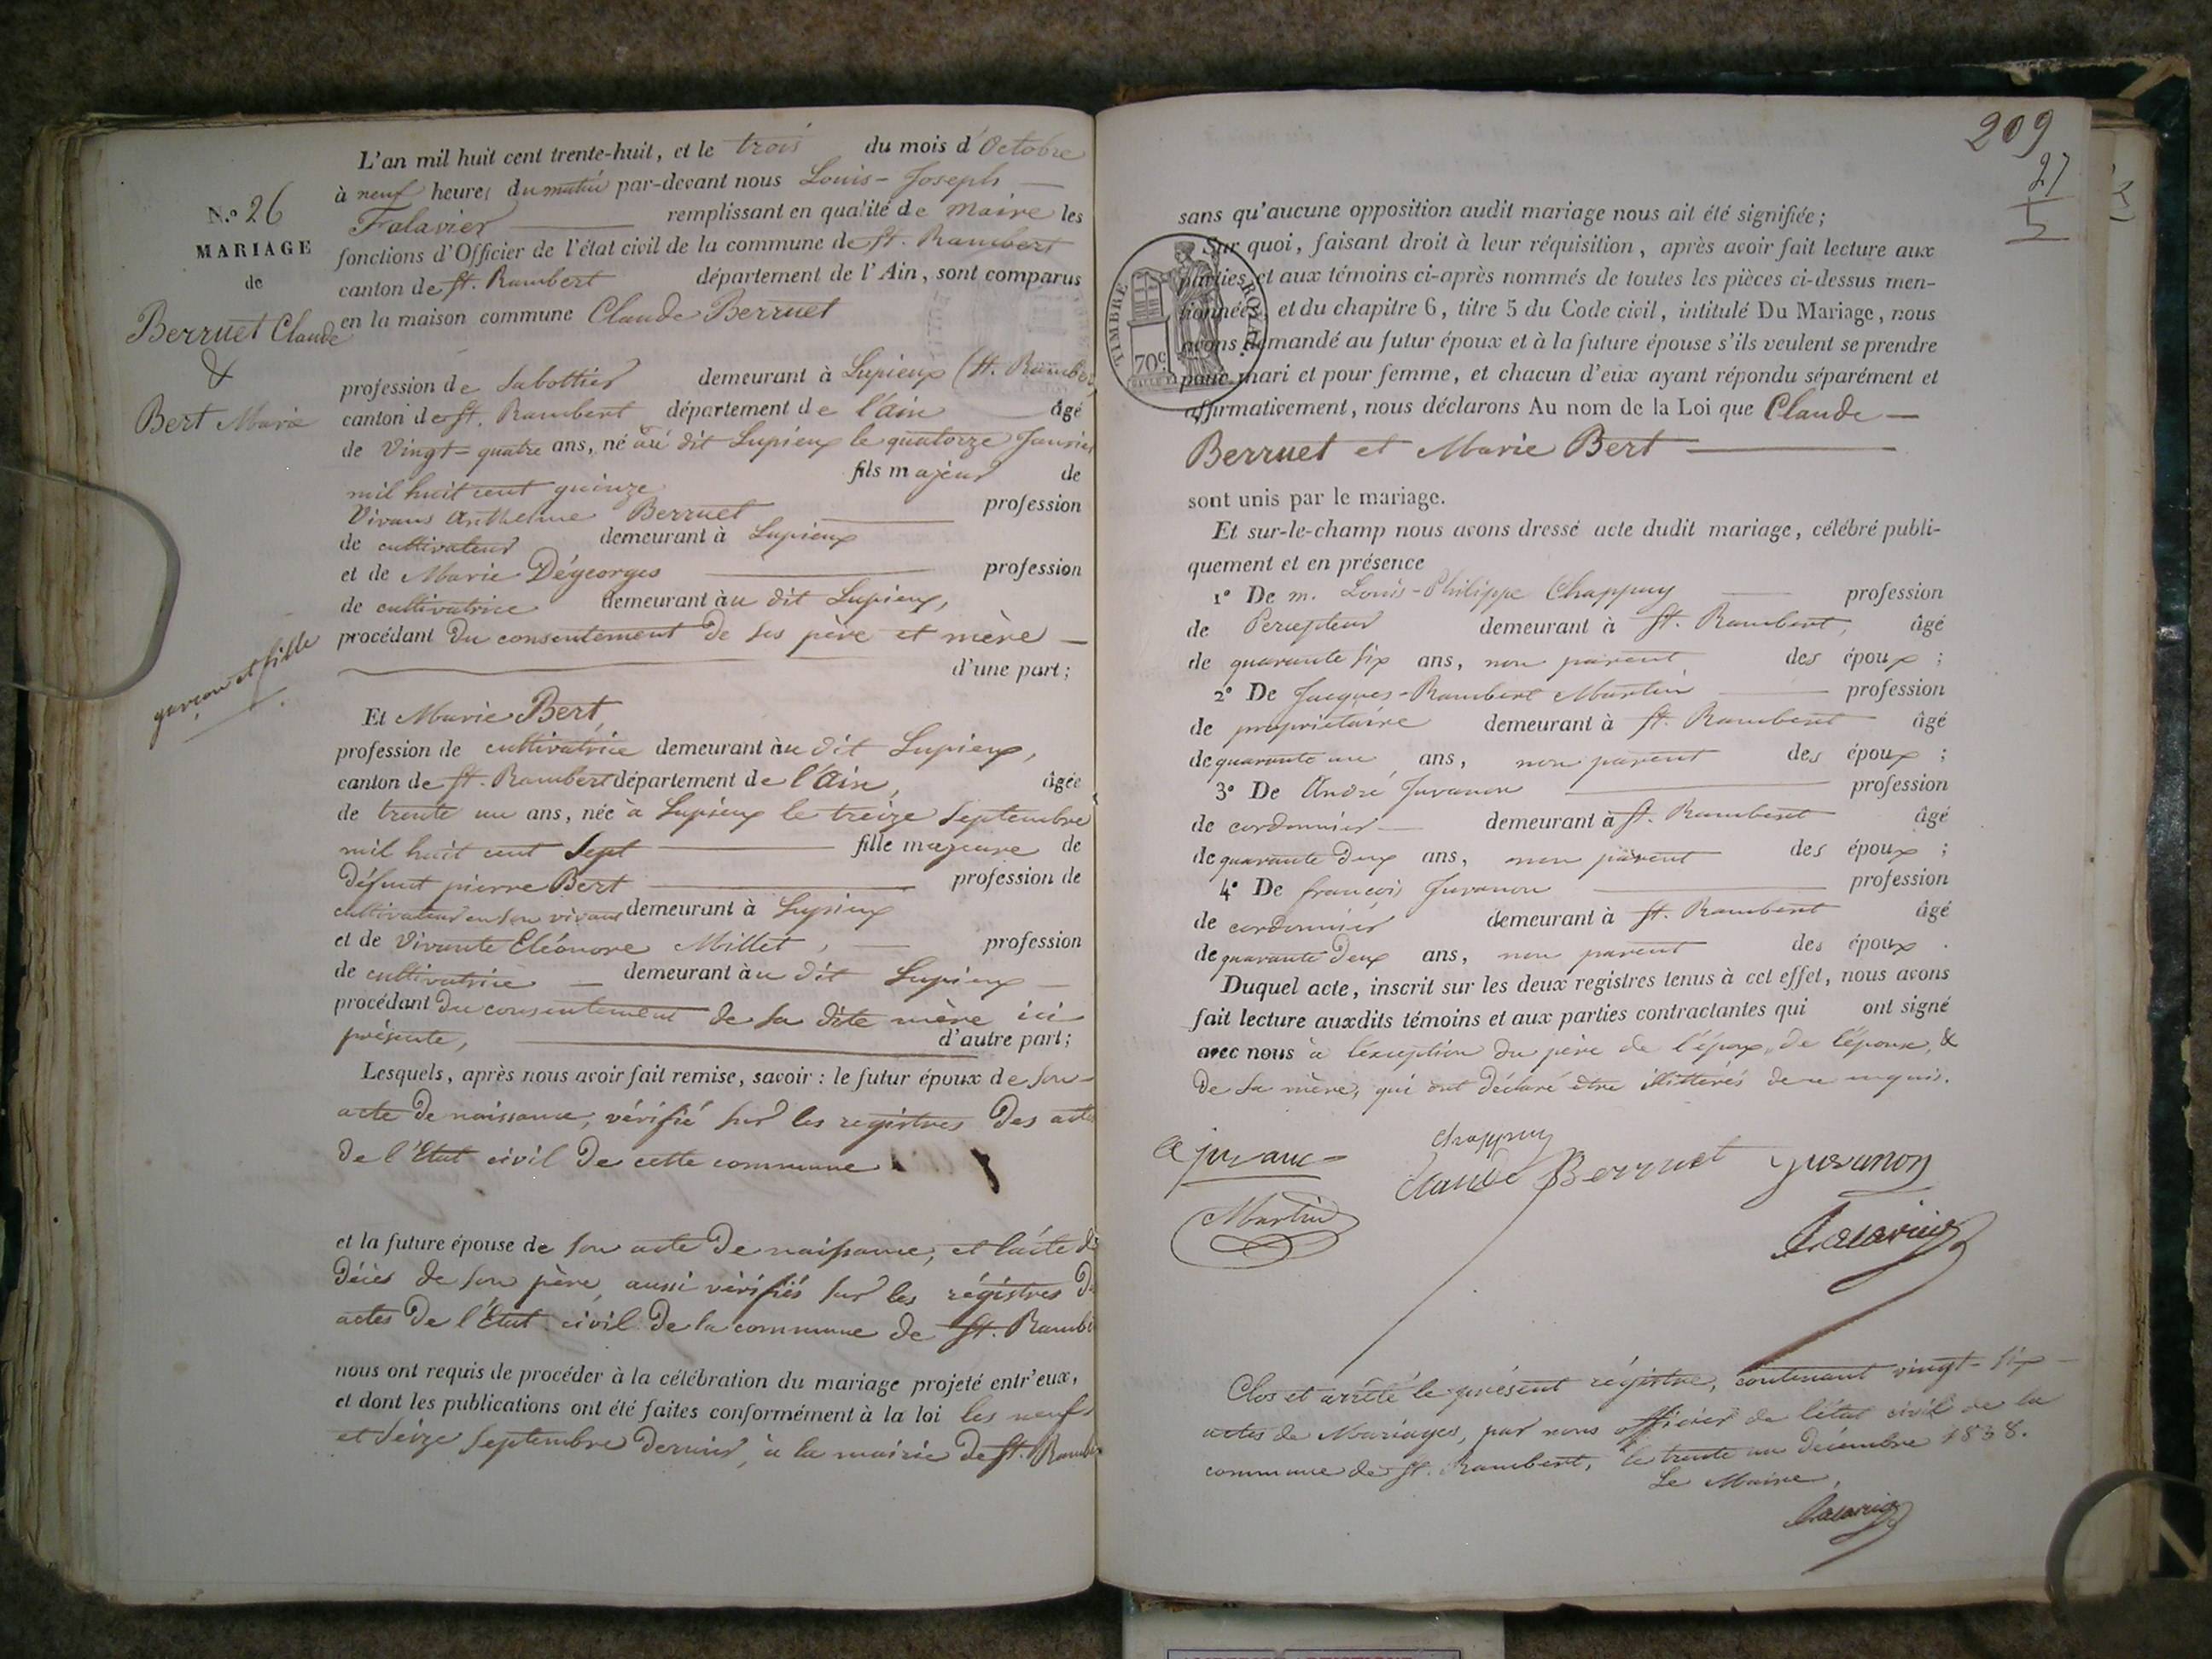 N.º 26
MARIAGE
de
Berruet Claude
&
Bert Marie
garçon et fille
L'an mil huit cent trente-huit, et le trois du mois d'Octobre
à neuf heures du matin par-devant nous Louis-Joseph
Falavier remplissant en qualité de Maire les
fonctions d'Officier de l'état civil de la commune de St. Rambert
canton de St. Rambert département de l'Ain, sont comparus
en la maison commune Claude Berruet
profession de Sabottier demeurant à Lupieux (St. Rambert
canton de St. Rambert département de l'ain âgé
de Vingt-quatre ans, né au dit Lupieux le quatorze Janvier
mil huit cent quinze fils majeur de
Vivans Anthelme Berruet profession
de cultivateur demeurant à Lupieux
et de Marie Dégeorges profession
de cultivatrice demeurant àu dit Lupieux,
procédant du consentement de ses père et mère
d'une part;
Et Marie Bert,
profession de cultivatrice demeurant àu dit Lupieux,
canton de St. Rambert département de l'Ain, âgée
de trente un ans, née à Lupieux le treize Septembre
mil huit cent Sept fille majeure de
défunt pierre Bert profession de
cultivateur en son vivant demeurant à Lupieux
et de Vivante Eléonore Millet, profession
de cultivatrice demeurant àu dit Lupieux
procédant du consentement de sa dite mère ici
présente, d'autre part;
Lesquels, après nous avoir fait remise, savoir : le futur époux de son
acte de naissance, vérifié sur les registres des actes
de l'Etat civil de cette commune
et la future épouse de son acte de naissance, et l'acte de
décès de son père, aussi vérifiés sur les régistres des
actes de l'Etat civil de la commune de St. Rambert
nous ont requis de procéder à la célébration du mariage projeté entr'eux,
et dont les publications ont été faites conformément à la loi les neuf
et Seize Septembre dernier, à la mairie de St. Rambert
209
27
5
TIMBRE ROYAL
70c
sans qu'aucune opposition audit mariage nous ait été signifiée;
Sur quoi, faisant droit à leur réquisition, après avoir fait lecture aux
parties et aux témoins ci-après nommés de toutes les pièces ci-dessus men-
tionnées, et du chapitre 6, titre 5 du Code civil, intitulé Du Mariage, nous
avons demandé au futur époux et à la future épouse s'ils veulent se prendre
pour mari et pour femme, et chacun d'eux ayant répondu séparément et
affirmativement, nous déclarons Au nom de la Loi que Claude
Berruet et Marie Bert
sont unis par le mariage.
Et sur-le-champ nous avons dressé acte dudit mariage, célébré publi-
quement et en présence
1º De m. Louis-Philippe Chappuy profession
de Percepteur demeurant à St. Rambert, âgé
de quarante six ans, non parent des époux;
2º De Jacques-Rambert Martin profession
de propriétaire demeurant à St. Rambert âgé
de quarante un ans, non parent des époux;
3º De André Juvanon profession
de cordonnier demeurant à St. Rambert âgé
de quarante deux ans, non parent des époux;
4º De françois Juvanon profession
de cordonnier demeurant à St. Rambert âgé
de quarante deux ans, non parent des époux.
Duquel acte, inscrit sur les deux registres tenus à cet effet, nous avons
fait lecture auxdits témoins et aux parties contractantes qui ont signé
avec nous à l'exception du père de l'époux, de l'épouse, &
de sa mère, qui ont déclaré être illittérés de ce enquis.
Chappuy
Claude Berruet Juvanon
Martin
Falavier
Clos et arrêté le présent régistre, contenant vingt-six
actes de Mariages, par nous officier de l'état civil de la
commune de St. Rambert, le trente un décembre 1838.
Le Maire,
Falavier